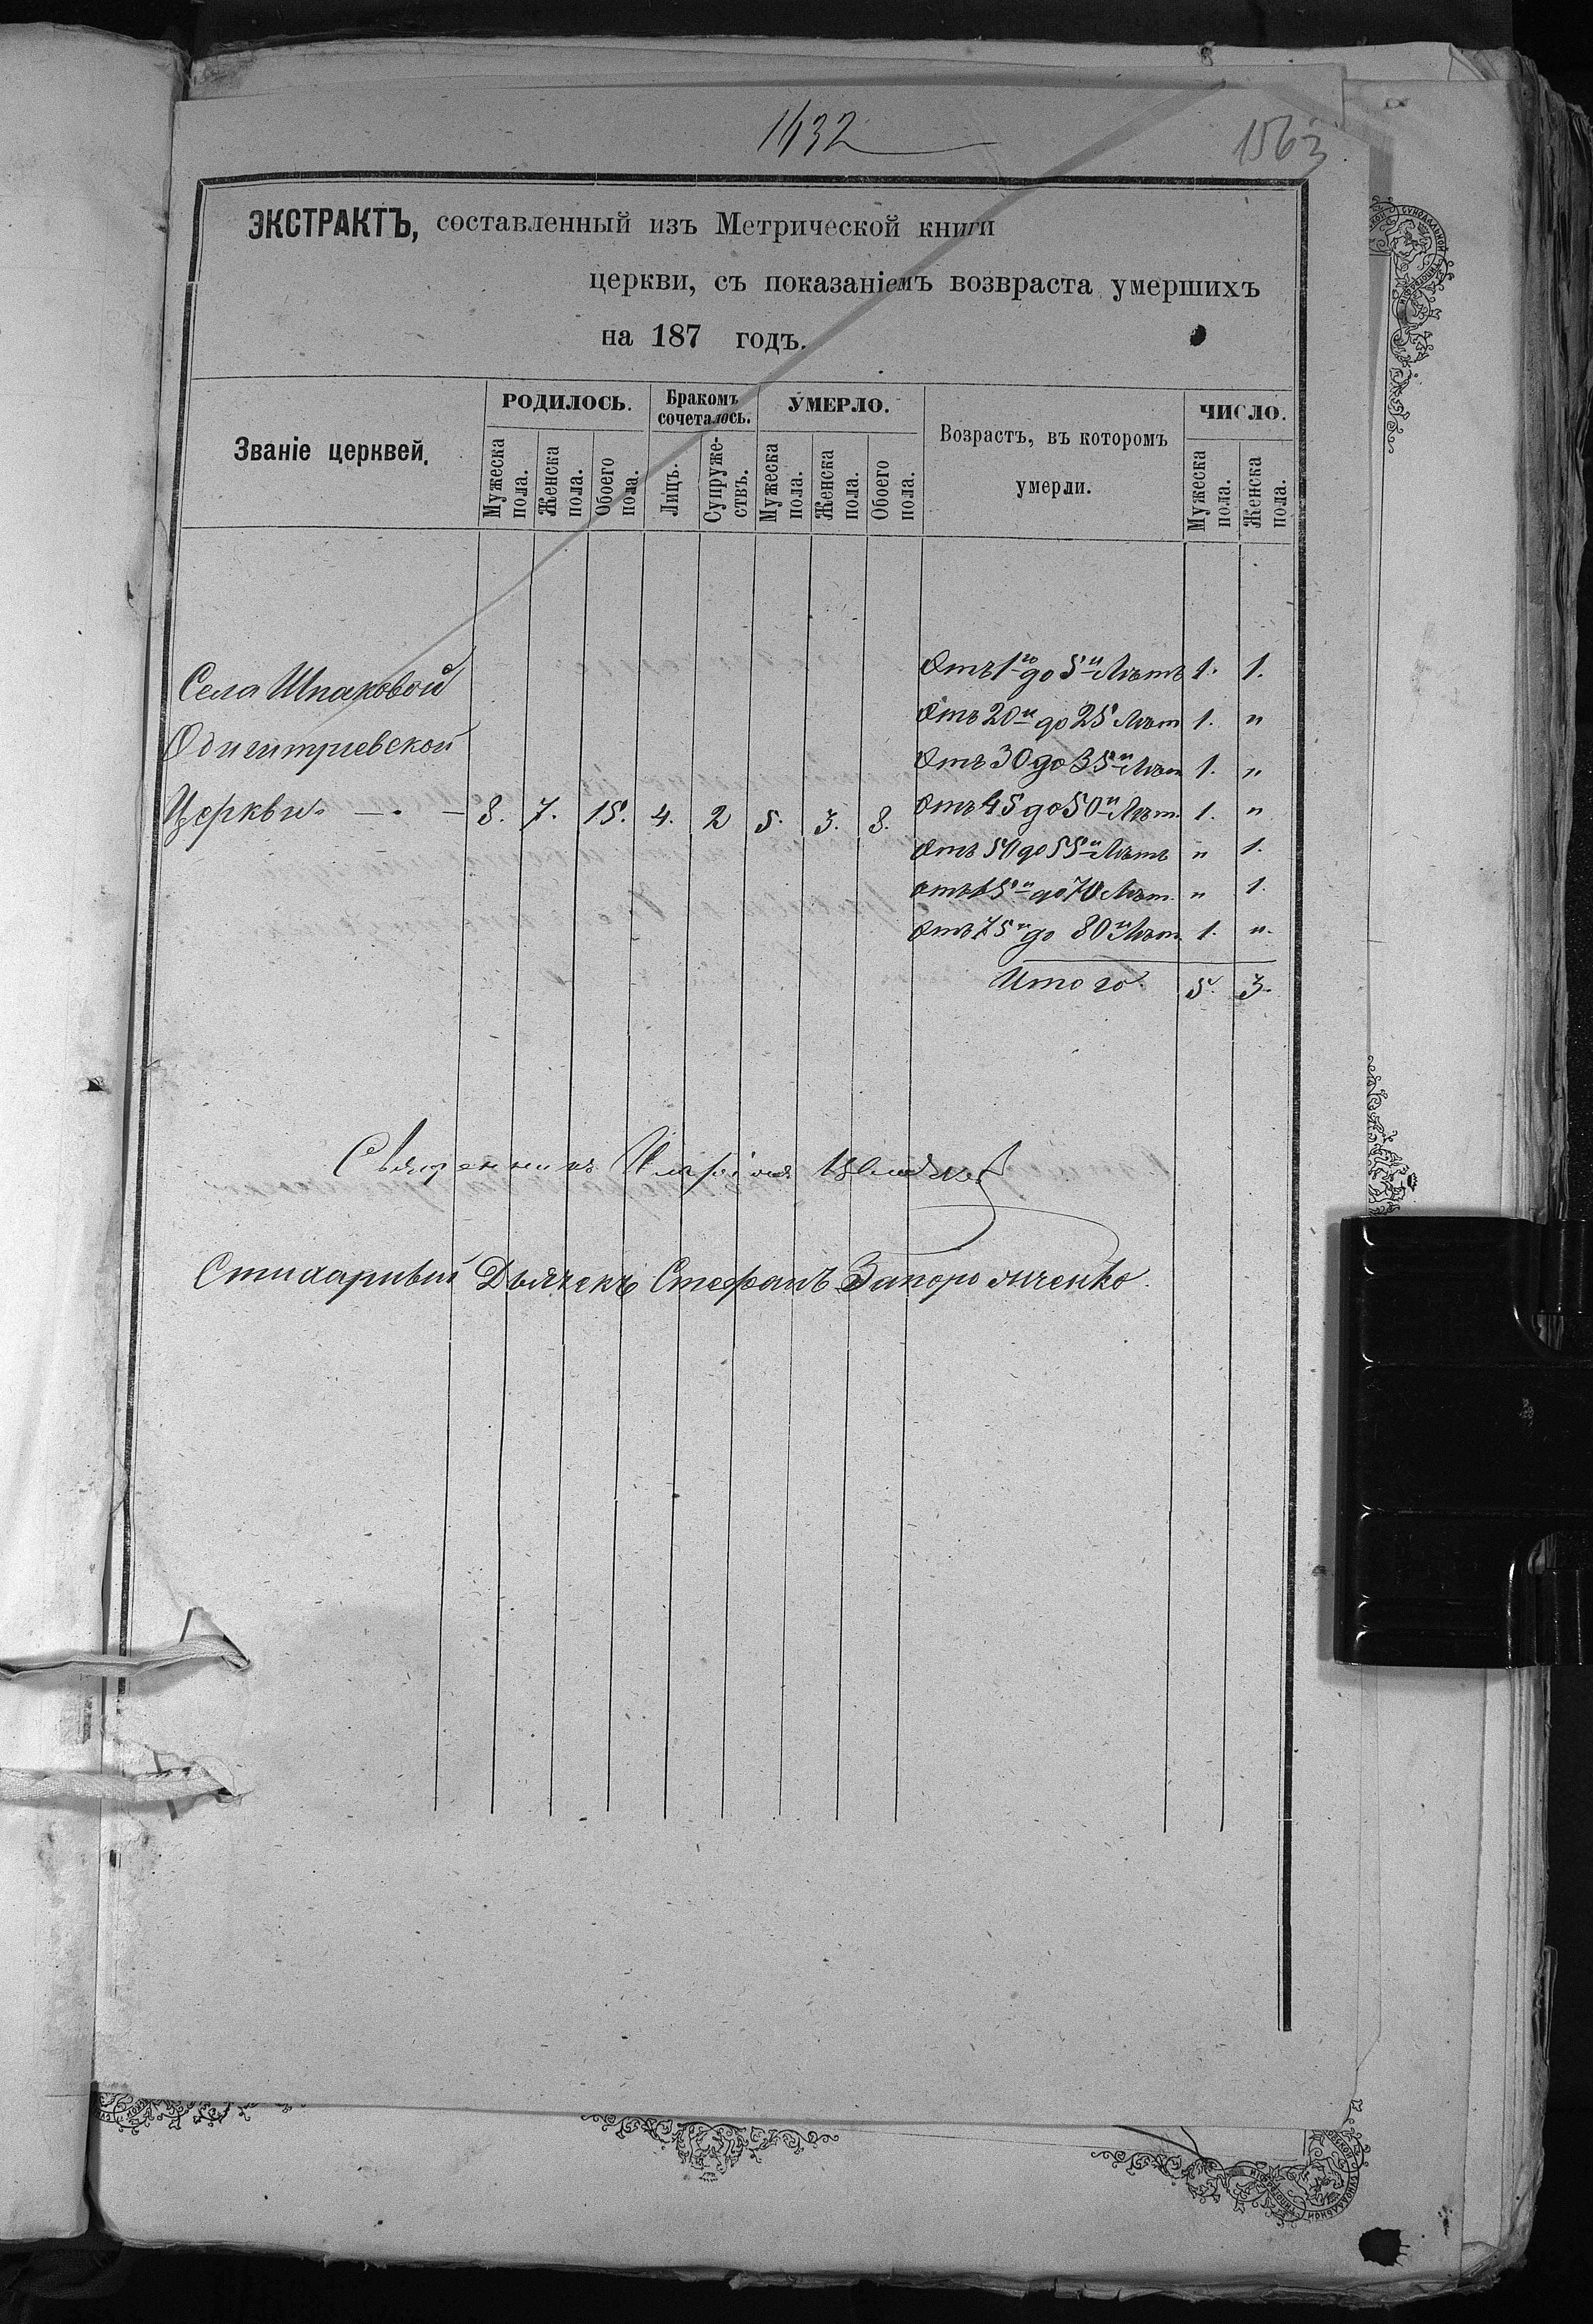 1432
1563
ЭКСТРАКТЪ, составленный изъ Метрической книги
церкви, съ показаніемъ возвраста умершихъ
на 187 годъ.
Званіе церквей.
РОДИЛОСЬ.
Мужеска пола.
Женска пола.
Обоего пола.
Бракомъ сочеталось.
Лицъ.
Супруже-ствъ.
УМЕРЛО.
Мужеска пола.
Женска пола.
Обоего пола.
Возрастъ, въ которомъ
умерли.
ЧИСЛО.
Мужеска пола.
Женска пола.
Села Шпаковой
Одигитріевской
Церкви. — . — 8. 7. 15. 4. 2 5. 3. 8.
Отъ 1го до 5и Лѣтъ 1. 1.
Отъ 20и до 25 Лѣт 1. "
Отъ 30 до 35и Лѣт 1. "
Отъ 45 до 50и Лѣт. 1. "
Отъ 50 до 55и Лѣтъ " 1.
отъ 65и до 70 Лѣт. " 1.
Отъ 75и до 80и Лѣт. 1. ".
Итого. 5. 3.
Священникъ
Стихарный Дьячекъ Стефанъ Запорожченко.
СУНОДАЛЬНОЙ ТИПОГРАФІИ